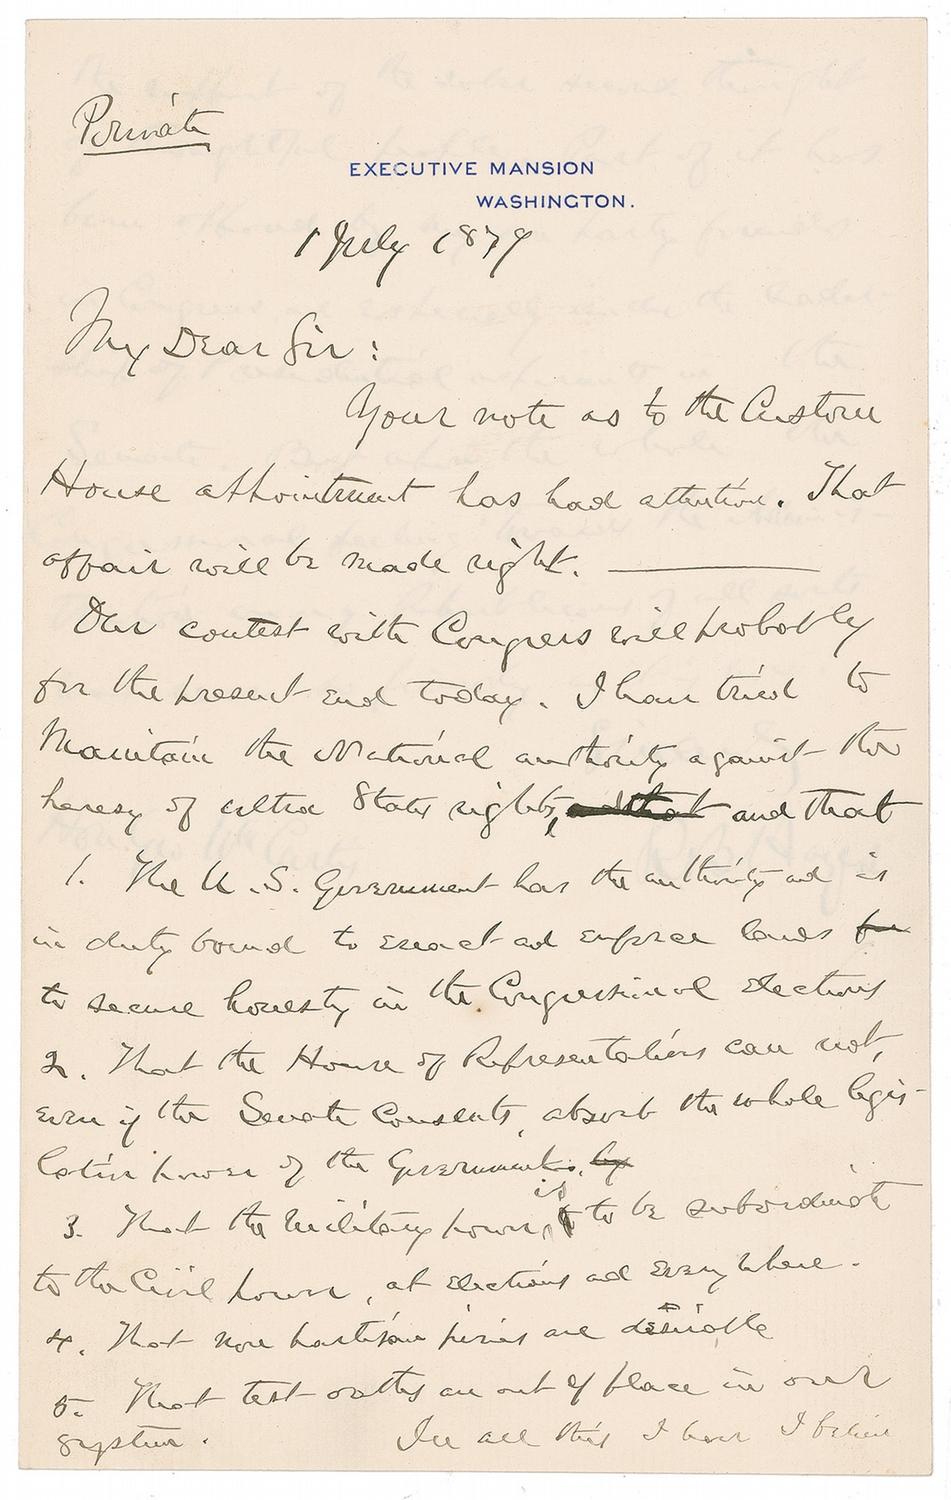 Private
EXECUTIVE MANSION
WASHINGTON.
1 July 1879
My Dear Sir:
Your note as to the Custom
House appointment has had attention. That
affair will be made right. ———
Our contest with Congress will probably
for the present end today. I have tried to
Maintain the National authority against the
heresy of ultra State rights, and that
1. The U.S. Government has the authority and is
in duty bound to enact and enforce laws for
to secure honesty in the Congressional elections
2. That the House of Representatives can not,
even if the Senate Consents, absorb the whole legis-
lative power of the Government. by
3. That the Military power is to be subordinate
to the Civil power, at elections and everywhere.
4. That non partisan juries are desirable
5. That test oaths are out of place in our
system. In all this I have I believe